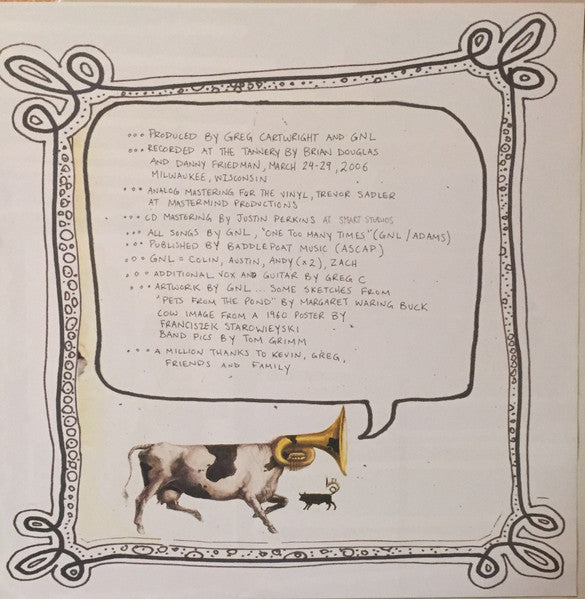 °°° PRODUCED BY GREG CARTWRIGHT AND GNL
°°° RECORDED AT THE TANNERY BY BRIAN DOUGLAS
AND DANNY FRIEDMAN, MARCH 24-29, 2006
MILWAUKEE, WISCONSIN
°°° ANALOG MASTERING FOR THE VINYL, TREVOR SADLER
AT MASTERMIND PRODUCTIONS
°°° CD MASTERING BY JUSTIN PERKINS AT SMART STUDIOS
°°° ALL SONGS BY GNL, "ONE TOO MANY TIMES" (GNL/ADAMS)
°°° PUBLISHED BY BADDLEPOAT MUSIC (ASCAP)
°°° GNL = COLIN, AUSTIN, ANDY (x2), ZACH
°°° ADDITIONAL VOX AND GUITAR BY GREG C
°°° ARTWORK BY GNL... SOME SKETCHES FROM
"PETS FROM THE POND" BY MARGARET WARING BUCK
COW IMAGE FROM A 1960 POSTER BY
FRANCISZEK STAROWIEYSKI
BAND PICS BY TOM GRIMM
°°° A MILLION THANKS TO KEVIN, GREG,
FRIENDS AND FAMILY